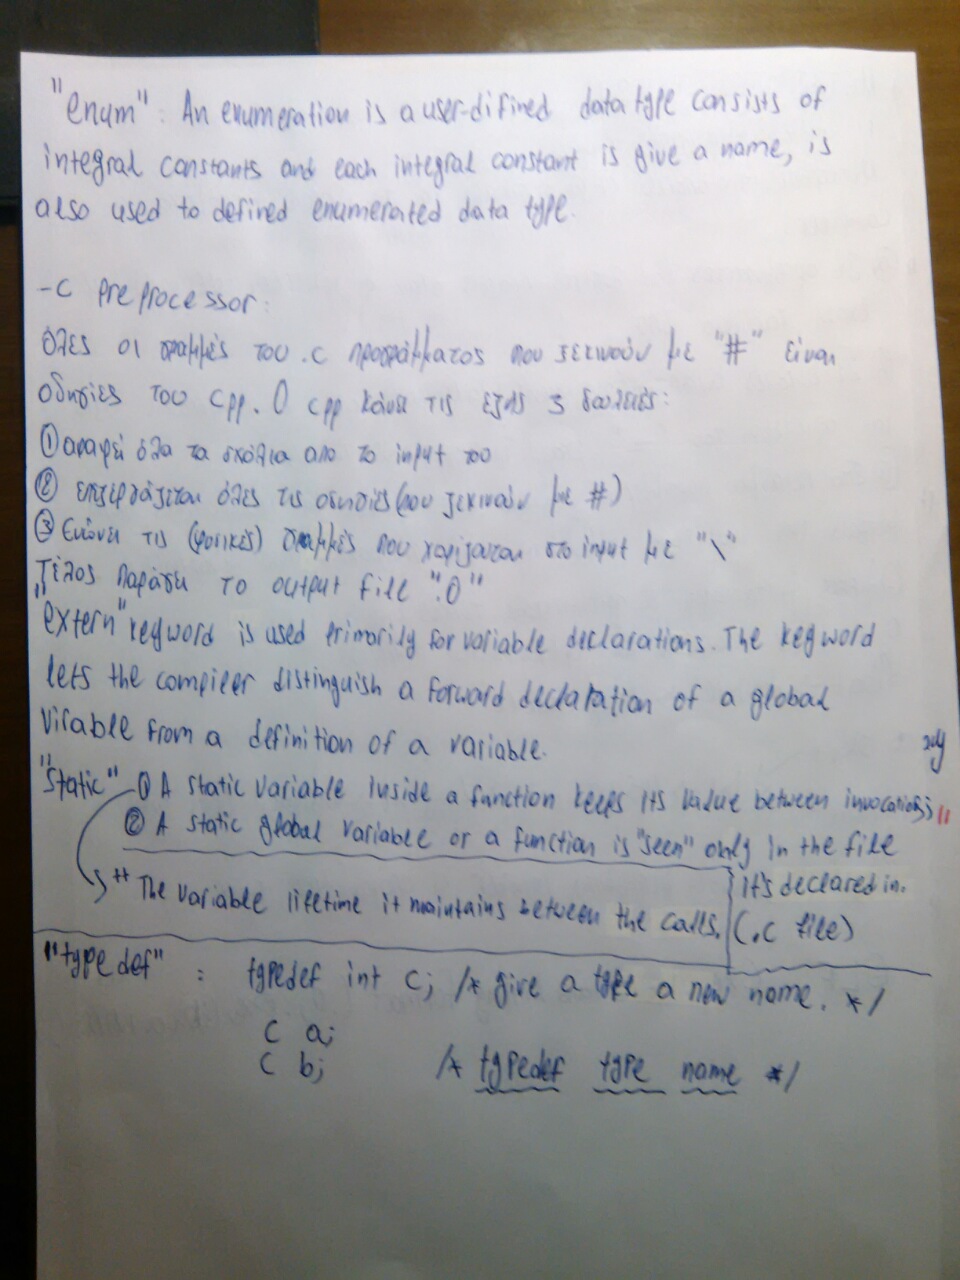 "enum": An enumeration is a user-difined data type consists of
integral constants and each integral constant is give a name, is
also used to defined enumerated data type.
-C preprocessor:
όλες οι γραμμές του .c προγράμματος που ξεκινούν με "#" είναι
οδηγίες του cpp. Ο cpp κάνει τις εξής 3 δουλειές:
① αφαιρεί όλα τα σχόλια απο το input του
② επεξεργάζεται όλες τις οδηγίες (που ξεκινούν με #)
③ Ενώνει τις (φυσικές) γραμμές που χωρίζονται στο input με "\"
Τέλος παράγει το output file ".o"
"extern" keyword is used primarily for variable declarations. The keyword
lets the compiler distinguish a forward declaration of a global
virable from a definition of a variable.
"static" ① A static variable inside a function keeps its value between invocations;
② A static global variable or a function is "seen" only in the file
it's declared in.
(.c file)
** The variable lifetime it maintains between the calls.
"typedef" : typedef int c; /* give a type a new name. */
C a;
C b; /* typedef type name */